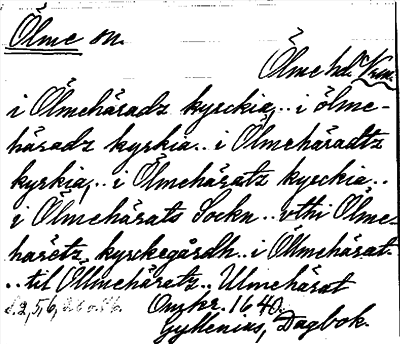 Ölme sn.
Ölme hd. Vrm.
i Ölmehäradz kyrckia,.. i ölme-
häradz kyrkia.. i Ölmehäradtz
kyrkia,.. i Ölmehäratz kyrckia..
i Ölmehärats Sockn.. vthi Ölme-
harëtz kyrckegårdh.. i Öllmehärat.
.. til Öllmehäratz.. Ulmehärat
S. 2, 5, 6,
Omkr. 1640.
Gyllenius, Dagbok.